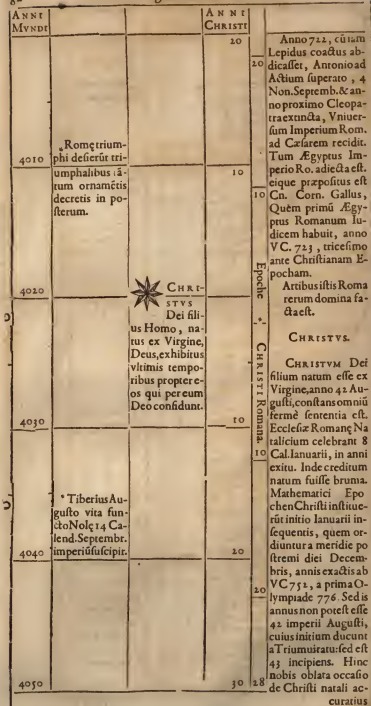 ANNI
MVNDI
ANNI
CHRISTI
20
4010
Romę trium-
phi desierũt tri-
umphalibus iã-
tum ornamẽtis
decretis in po-
sterum.
10
4020
CHRI-
STVS
Dei fili-
us Homo, na-
tus ex Virgine,
Deus, exhibitus
vltimis tempo-
ribus propter e-
os qui per eum
Deo confidunt.
4030
10
* Tiberius Au-
gusto vita fun-
cto Nolę 14 Ca-
lend. Septembr.
imperiũ suscipit.
4040
20
4050
30
20
10
Epoche
CHRISTI Romana.
10
20
28
Anno 722, cũ iam
Lepidus coactus ab-
dicasset, Antonio ad
Actium superato, 4
Non. Septemb. & an-
no proximo Cleopa-
tra extincta, Vniuer-
sum Imperium Rom.
ad Cæsarem recidit.
Tum Ægyptus Im-
perio Ro. adiecta est.
eique præpositus est
Cn. Corn. Gallus,
Quem primũ Ægy-
ptus Romanum Iu-
dicem habuit, anno
VC. 723, tricesimo
ante Christianam E-
pocham.
Artibus istis Roma
rerum domina fa-
cta est.
CHRISTVS.
CHRISTVM Dei
filium natum esse ex
Virgine, anno 42 Au-
gusti, constans omniũ
fermè sententia est.
Ecclesiæ Romanę Na
talicium celebrant 8
Cal. Ianuarii, in anni
exitu. Inde creditum
natum fuisse bruma.
Mathematici Epo
chen Christi institue-
rũt initio Ianuarii in-
sequentis, quem or-
diuntur a meridie po
stremi diei Decem-
bris, annis exactis ab
VC 752, a prima O-
lympiade 776. Sed is
annus non potest esse
42 imperii Augusti,
cuius initium ducunt
a Triumuiratu: sed est
43 incipiens. Hinc
nobis oblata occasio
de Christi natali ac-
curatius